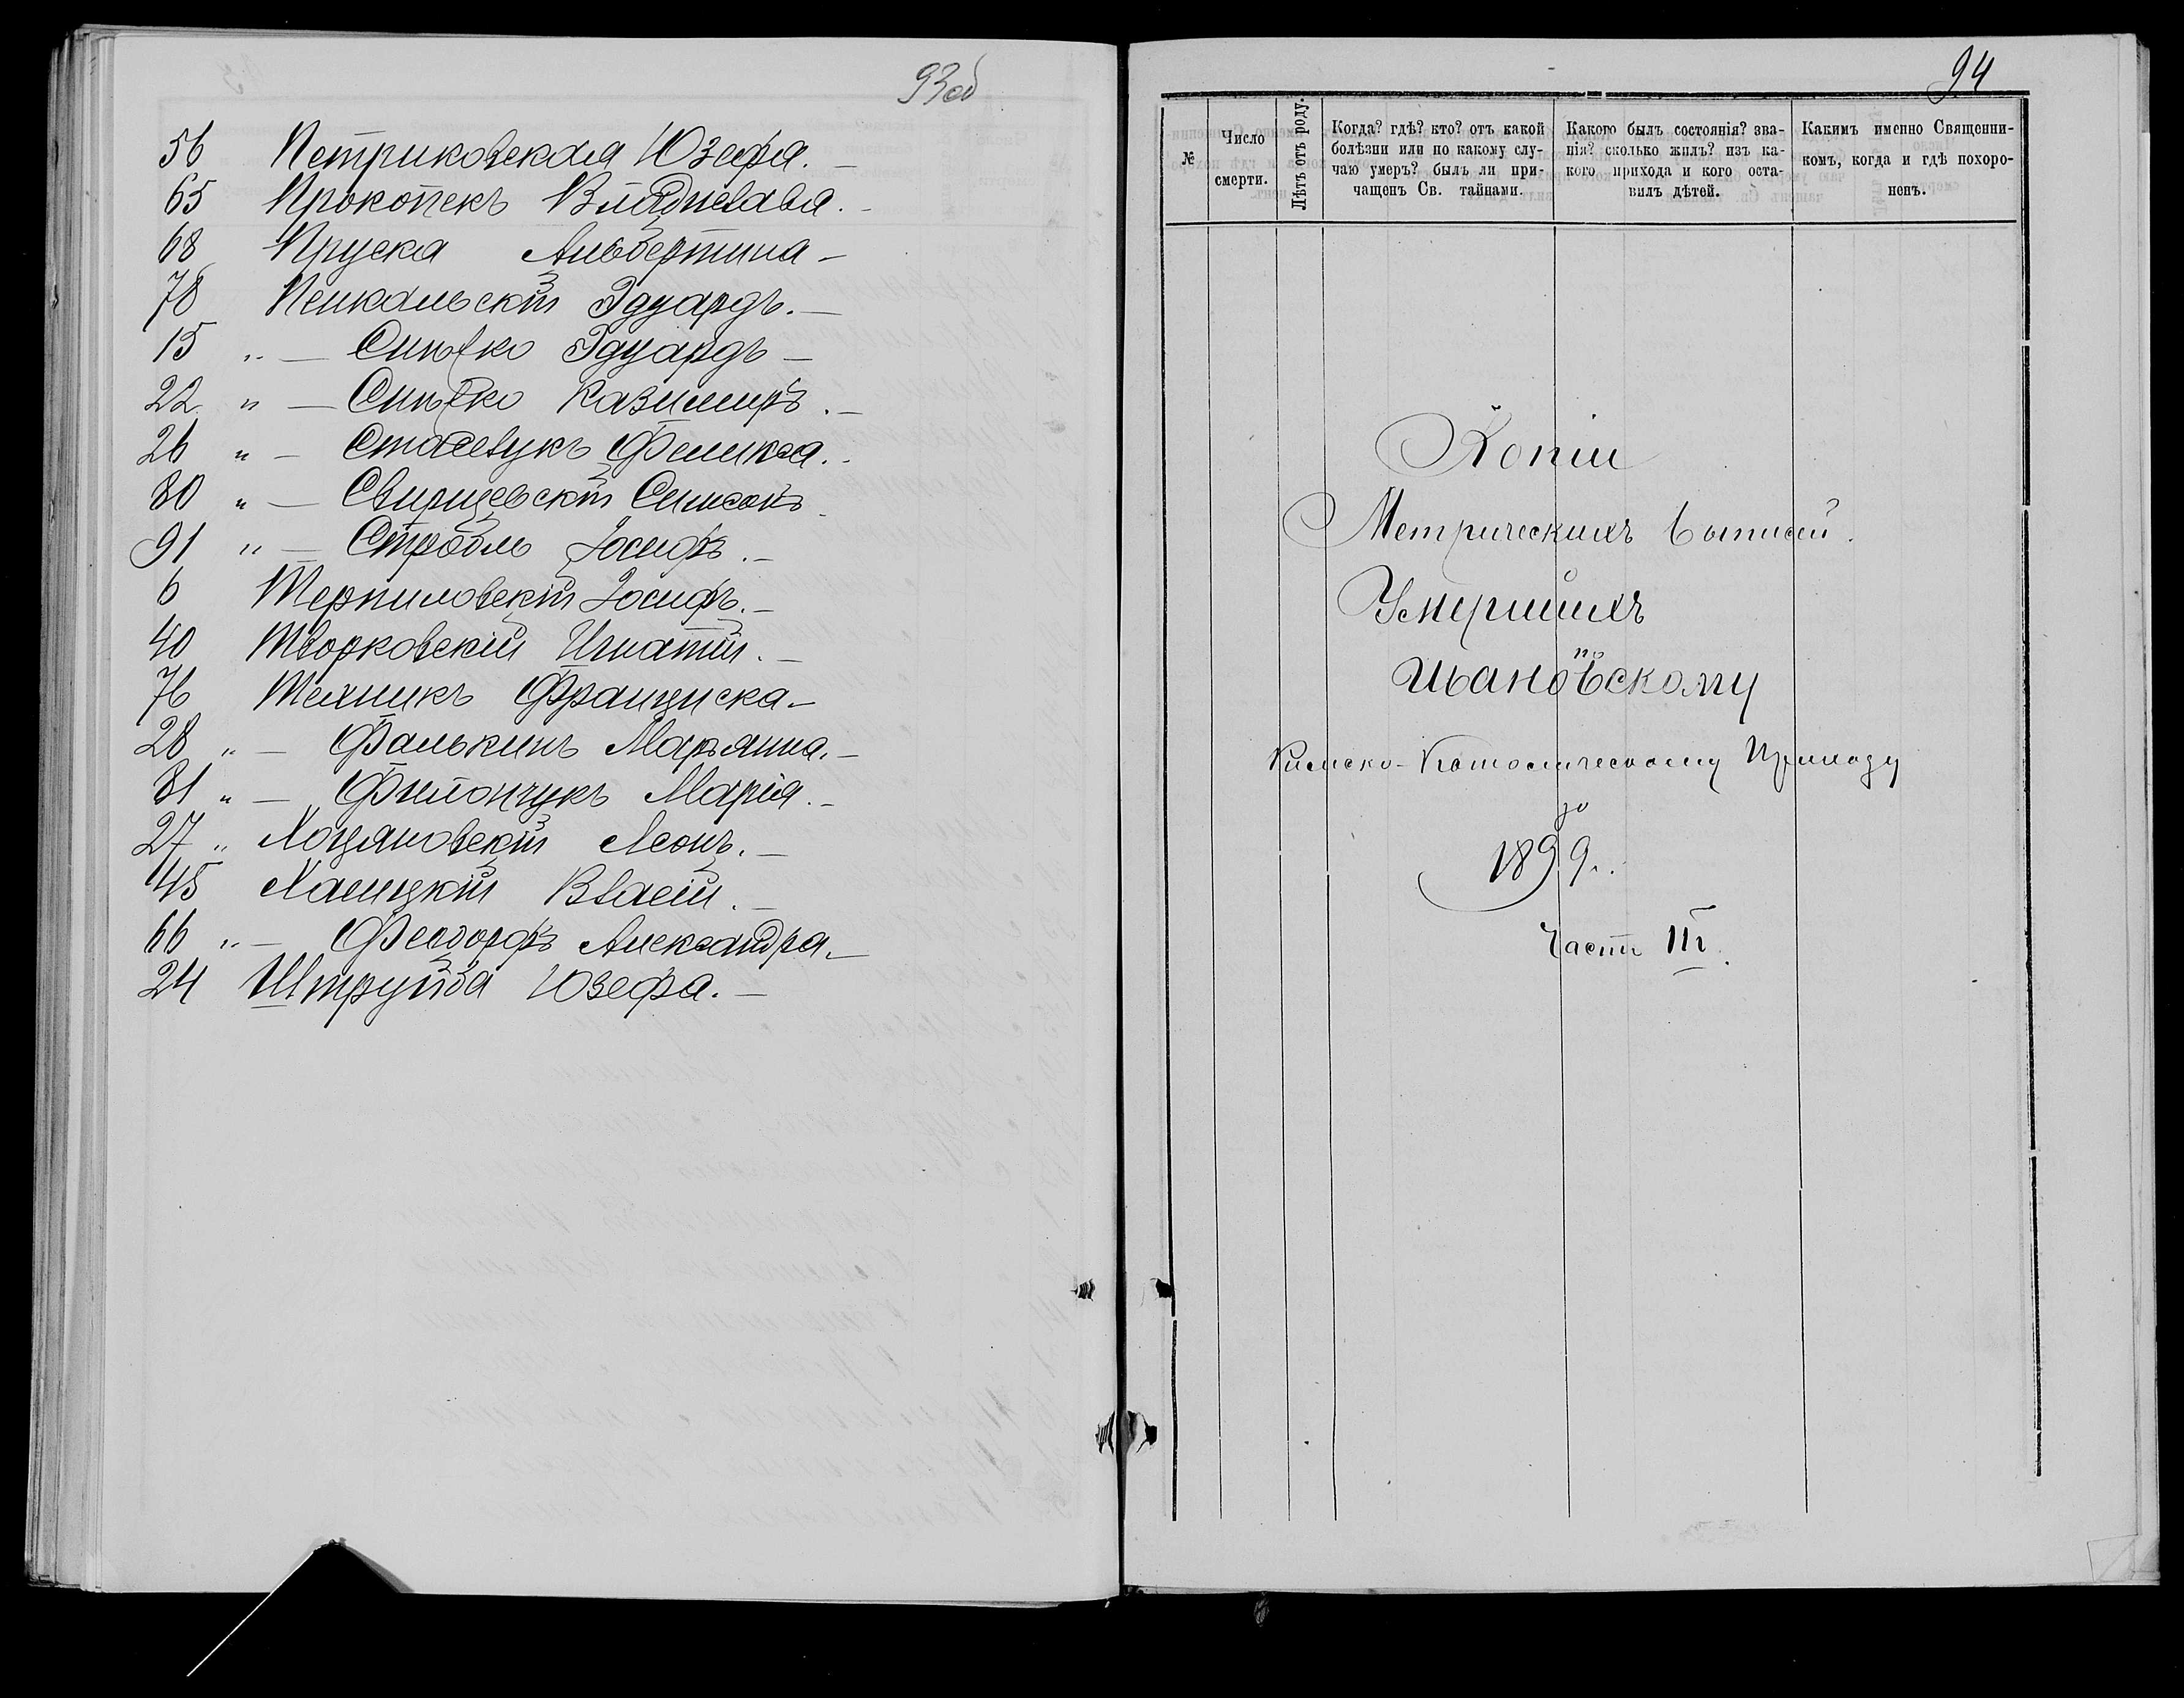 93об
56 Петриковская Юзефа. —
65 Прокопекъ Владислава. —
68 Пруска Альбертина —
78 Пенкальскій Эдуардъ. —
15 „ — Сипѣко Эдуардъ —
22 „ — Сипѣко Казимиръ. —
26 „ — Стасевукъ Феликса. —
80 „ — Свирщевскій Симеонъ
91 „ — Стробль Іосифъ. —
6 Терпиловскій Іосифъ. —
40 Творковскій Игнатій. —
76 Техникъ Франциска —
28 „ — Фалькинъ Марьянна. —
81 „ — Филончукъ Марія. —
27 „ Хоцяновскій Леонъ. —
45 Халицкій Власій. —
66 „ — Феодорфъ Александра —
24 Штрупба Юзефа. —
94
№
Число смерти.
Лѣтъ отъ роду.
Когда? гдѣ? кто? отъ какой болѣзни или по какому случаю умеръ? былъ ли причащенъ Св. тайнами.
Какого былъ состоянія? званія? сколько жилъ? изъ какого прихода и кого оставилъ дѣтей.
Какимъ именно Священникомъ, когда и гдѣ похороненъ.
Копіи
Метрическихъ выписей
Умершихъ
по
Ивановскому
Римско-Католическому Приходу
за
1899 г.
Часть III.